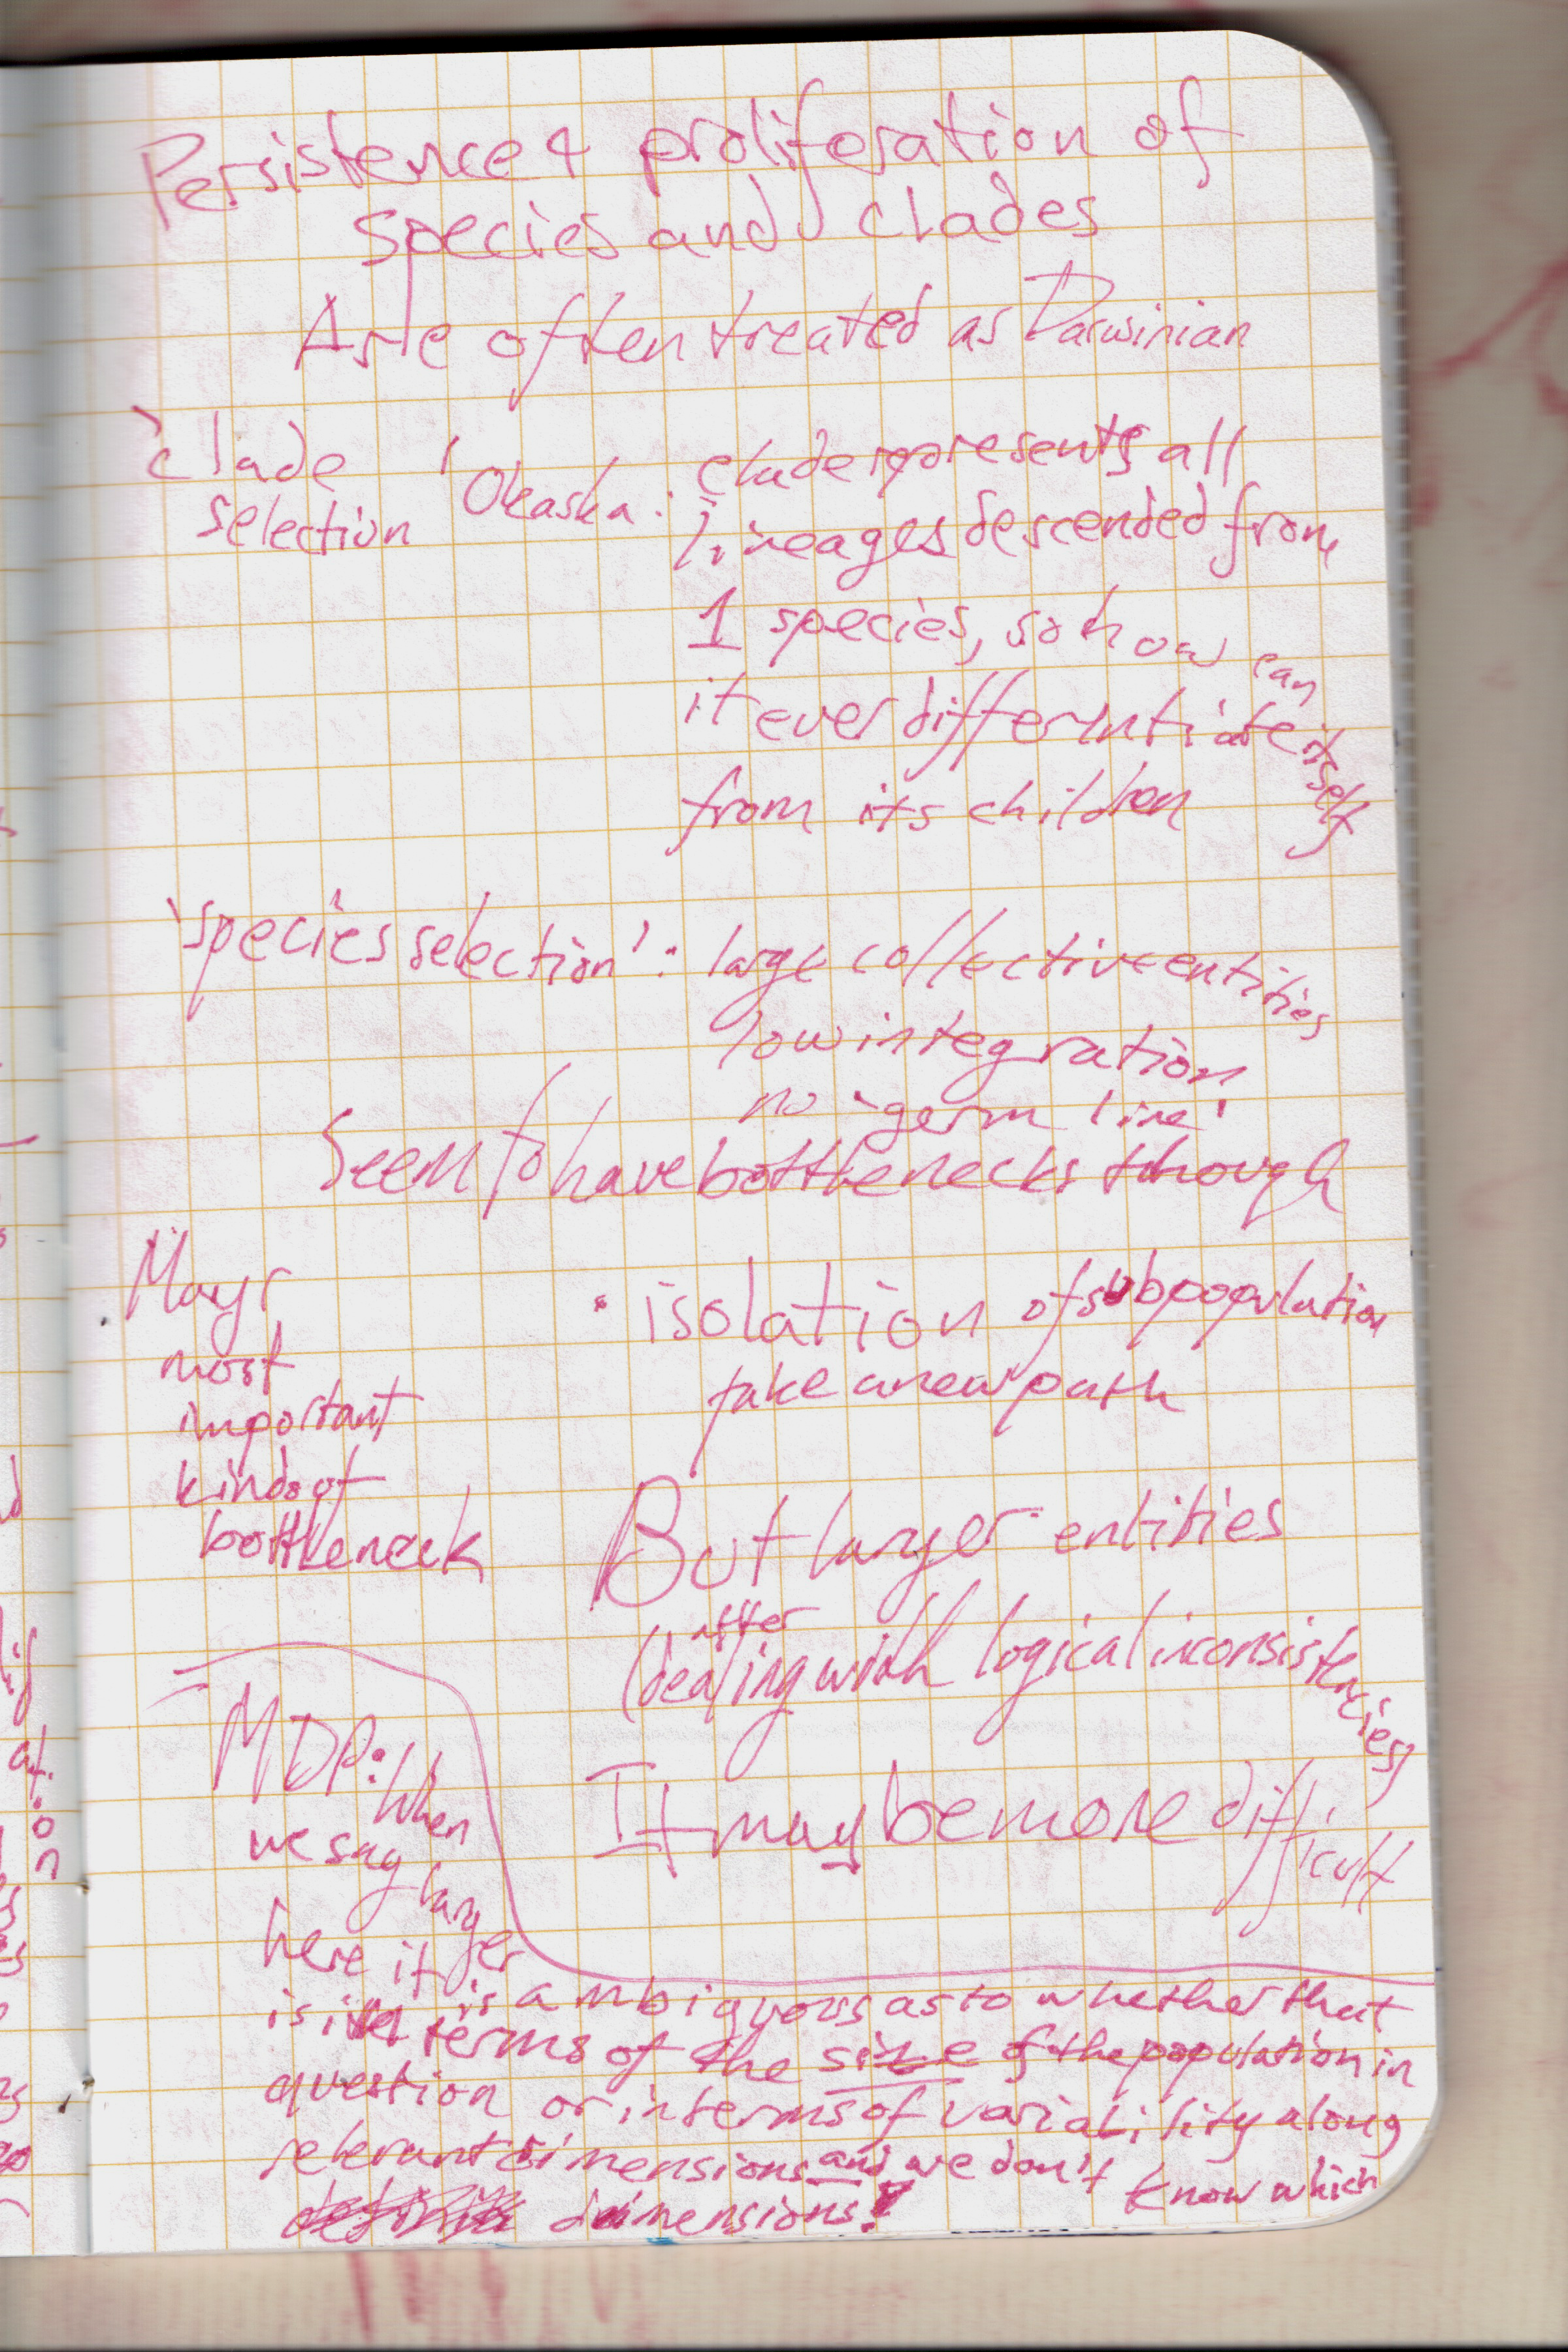 Persistence & proliferation of
species and clades
Are often treated as Darwinian
'clade
selection'
Okasha: clade represents all
lineages descended from
1 species, so how can
it ever differentiate itself
from its children
'species selection': large collective entities
low integration
no 'germ line'
Seem to have bottlenecks though
Mayr
most
important
kind of
bottleneck
· isolation of subpopulation
take a new path
But larger entities
(after dealing with logical inconsistencies)
It may be more difficult
MDP: When
we say larger
here it is ambiguous as to whether that
is in terms of the size of the population in
question or in terms of variability along
relevant dimensions and we don't know which
dimensions!